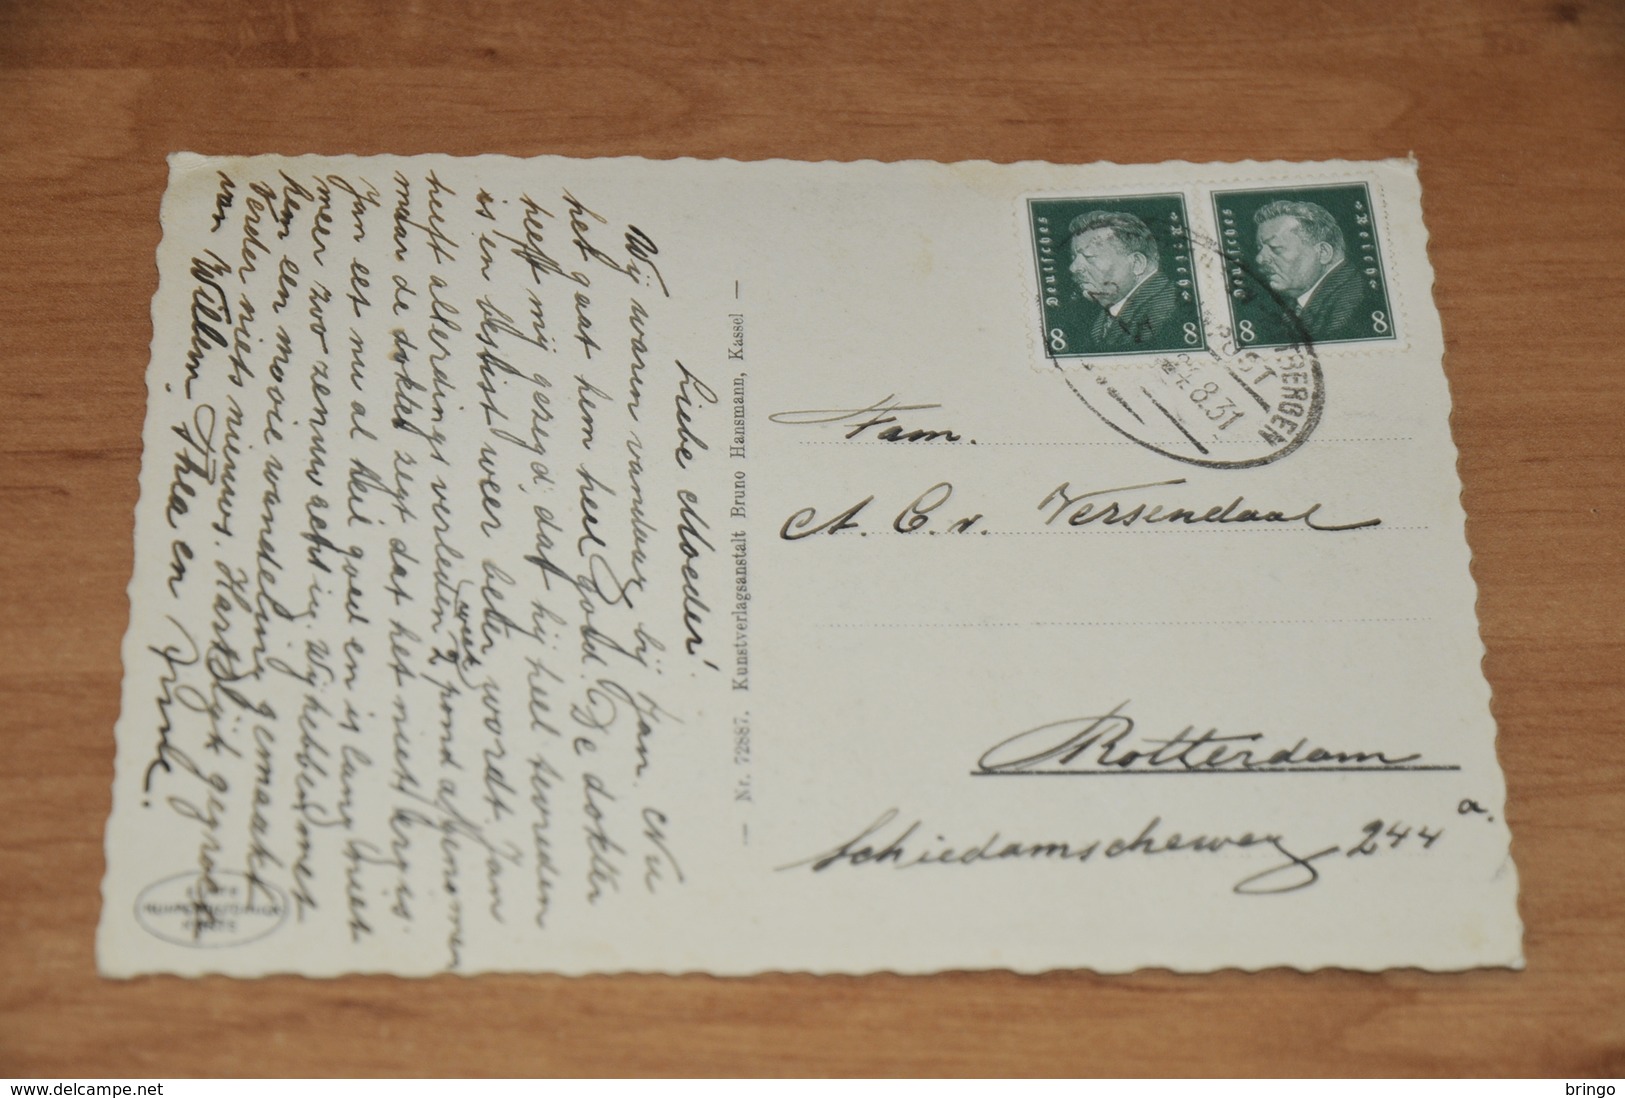 Liebe Moeder!
Wij waren vandaag bij Jan. Nu
het gaat hem heel goed. De dokter
heeft mij gezegd, dat hij heel tevreden
is en beslist weer beter wordt. Jan
heeft allerdings verleden week 2 pond afgenomen
maar de dokter zegt dat het niet erg is.
Jan eet nu al heel goed en is lang niet
meer zoo zenuwachtig. Wij hebben met
hem een mooie wandeling gemaakt
Verder niets nieuws. Hartelijk gegroet
van Willem. Thea en
Nr. 72887. Kunstverlagsanstalt Bruno Hansmann, Kassel
Deutsches Reich
8 8
Deutsches Reich
8 8
POST
24.8.31
Fam.
A. C. v. Versendaal
Rotterdam
Schiedamscheweg 244 a.
delcampe.net
bringo